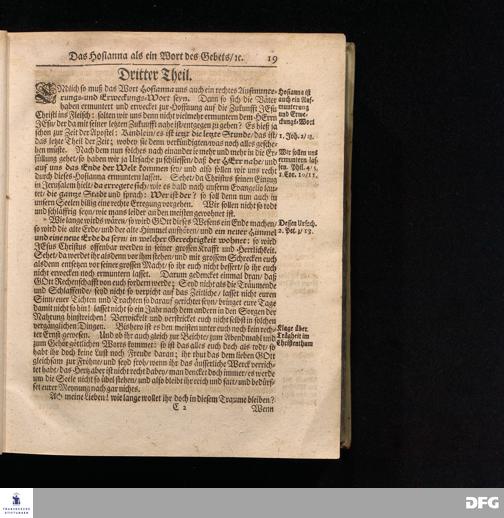 Das Hosianna als ein Wort des Gebets/ꝛc. 19
Dritter Theil.
ENdlich so muß das Wort Hosianna uns auch ein rechtes Aufmunte-
rungs- und Erweckungs-Wort seyn. Dann so sich die Väter
haben ermuntert und erwecket zur Hoffnung auf die Zukunfft JEsu
Christi ins Fleisch: solten wir uns denn nicht vielmehr ermuntern dem HErrn
JEsu/ der da mit seiner letzten Zukunfft nahe ist/ entgegen zu gehen? Es hieß ja
schon zur Zeit der Apostel: Kindlein/ es ist jetzt die letzte Stunde/ das ist/
das letzte Theil der Zeit; wobey sie denn verkündigten/ was noch alles gesche-
hen müste. Nach dem nun solches nach einander je mehr und mehr in die Er-
füllung gehet/ so haben wir ja Ursache zu schliessen/ daß der HErr nahe/ und
auf uns das Ende der Welt kommen sey/ und also sollen wir uns recht
durch dieses Hosianna ermuntern lassen. Sehet/ da Christus seinen Einzug
in Jerusalem hielt/ da erregete sich/ wie es bald nach unserm Evangelio lau-
tet/ die gantze Stadt und sprach: Wer ist der? so soll denn nun auch in
unsern Seelen billig eine rechte Erregung vorgehen. Wir sollen nicht so todt
und schläffrig seyn/ wie mans leider an den meisten gewohnet ist.
Wie lange wirds währen/ so wird GOtt dieses Wesens ein Ende machen/
so wird die alte Erde/ und der alte Himmel aufhören/ und ein neuer Himmel
und eine neue Erde da seyn/ in welcher Gerechtigkeit wohnet: so wird
JEsus Christus offenbar werden in seiner grossen Krafft und Herrlichkeit.
Sehet/ da werdet ihr alsdenn vor ihm stehen/ und mit grossem Schrecken euch
alsdenn entsetzen vor seiner grossen Macht/ so ihr euch nicht bessert/ so ihr euch
nicht erwecken noch ermuntern lasset. Darum gedencket einmal dran/ daß
GOtt Rechenschafft von euch fordern werde; Seyd nicht als die Träumende
und Schlaffende/ seyd nicht so verpicht auf das Zeitliche/ lasset nicht euren
Sinn/ euer Tichten und Trachten so darauf gerichtet seyn/ bringet eure Tage
damit nicht so hin! lasset nicht so ein Jahr nach dem andern in den Sorgen der
Nahrung hinstreichen! Verwickelt und verstricket euch nicht selbst in solchen
vergänglichen Dingen. Bishero ist es den meisten unter euch noch kein rech-
ter Ernst gewesen. Und ob ihr auch gleich zur Beichte/ zum Abendmahl und
zum Gehör göttlichen Worts kommet: so ist das alles euch doch als todt/ so
habt ihr doch keine Lust noch Freude daran; ihr thut das dem lieben GOtt
gleichsam zur Frohne/ und seyd froh/ wenn ihr das äusserliche Werck verrich-
tet habt/ das Hertz aber ist nicht recht dabey/ man dencket doch immer/ es werde
um die Seele nicht so übel stehen/ und also bleibt ihr reich und satt/ und bedürf-
fet eurer Meynung nach gar nichts.
Ach meine Lieben! wie lange wollet ihr doch in diesem Traume bleiben?
C 2 Wenn
Hosianna ist
auch ein Auf-
munterung
und Erwe-
ckungs-Wort
1. Joh. 2/ 18.
Wir sollen uns
ermuntern las-
sen. Phil. 4/ 5.
1. Cor. 10/ 11.
Dessen Ursach.
2. Pet. 3/ 13.
Klage über
Trägheit im
Christenthum
FRANCKESCHE
STIFTUNGEN
DFG